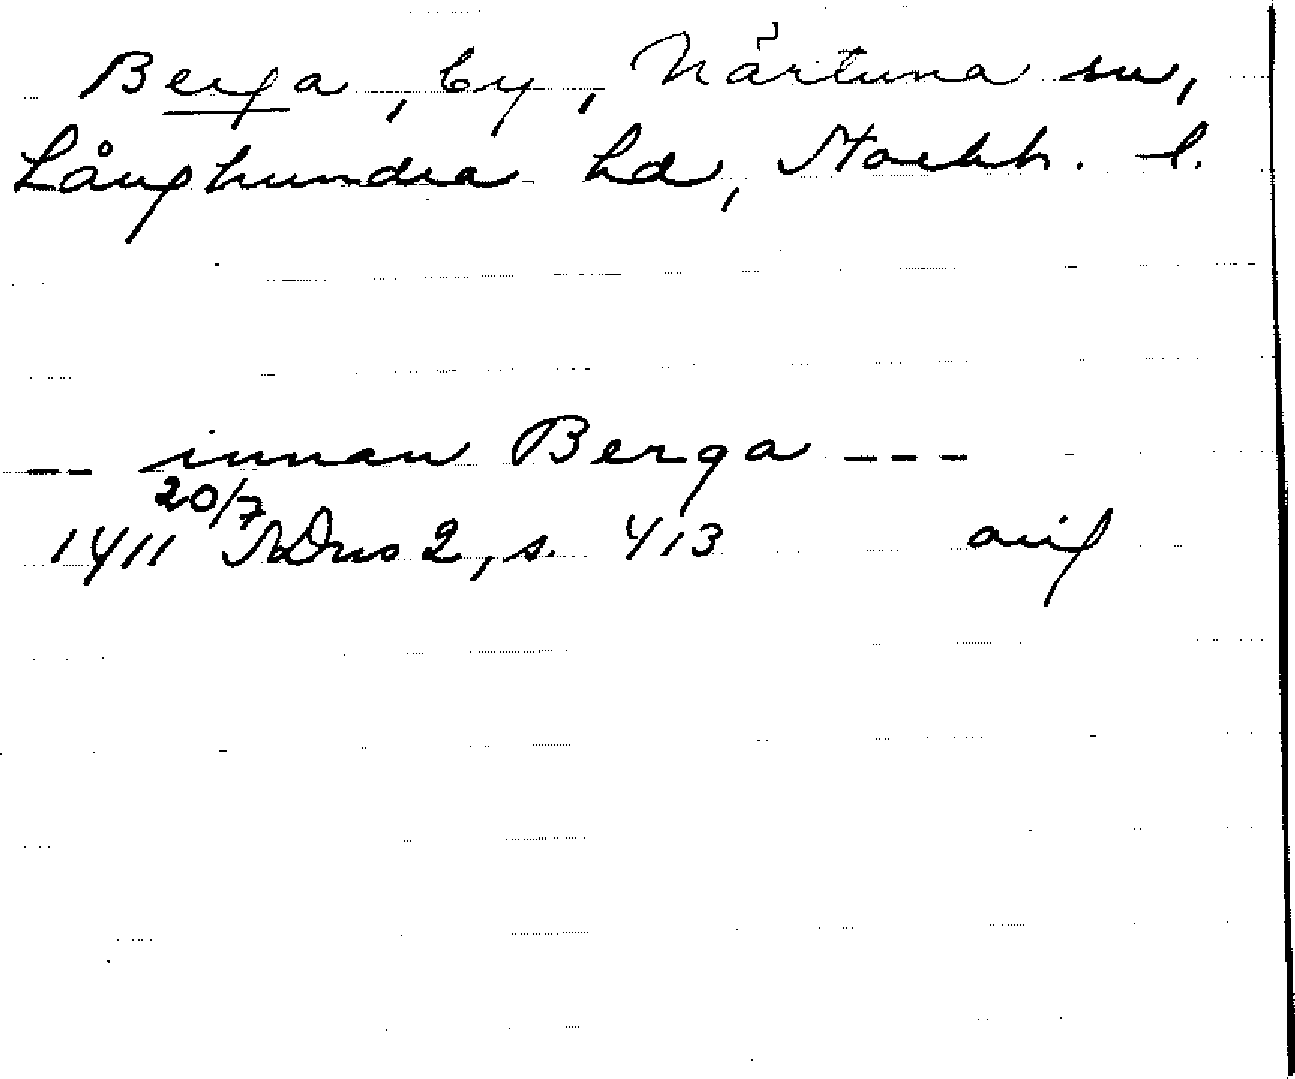 Berga, by, Närtuna sn,
Långhundra hd, Stockh. l.
-- innan Berga ---
1411 20/7 SDns 2, s. 413 orig